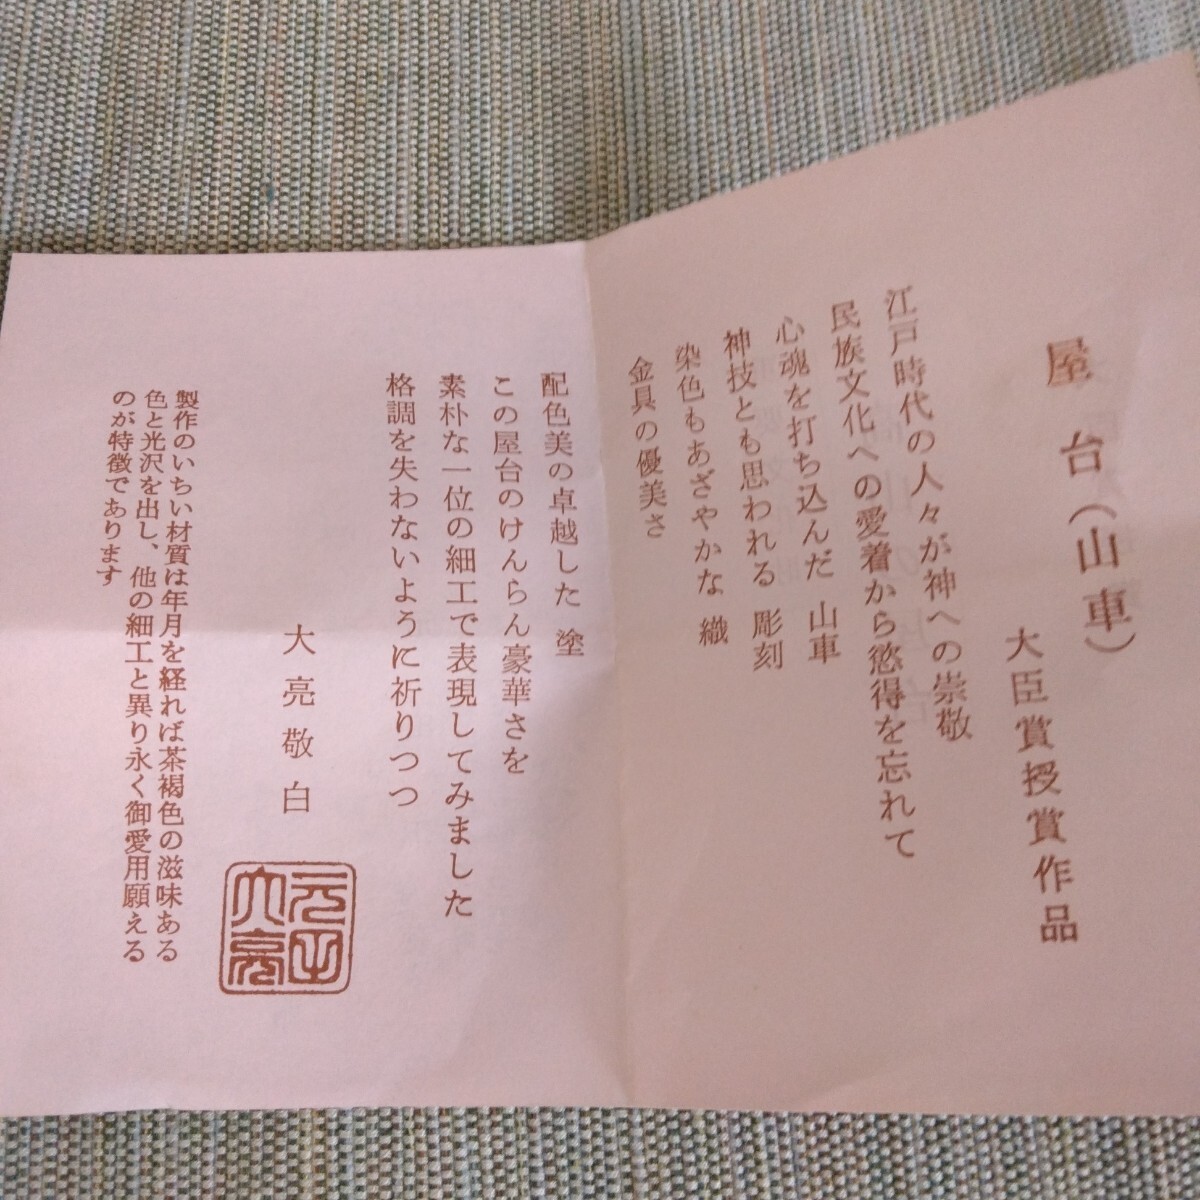 屋台(山車)
大臣賞授賞作品
江戸時代の人々が神への崇敬
民族文化への愛着から慾得を忘れて
心魂を打ち込んだ 山車
神技とも思われる 彫刻
染色もあざやかな 織
金具の優美さ
配色美の卓越した 塗
この屋台のけんらん豪華さを
素朴な一位の細工で表現してみました
格調を失わないように祈りつつ
大亮敬白
製作のいちい材質は年月を経れば茶褐色の滋味ある
色と光沢を出し、他の細工と異り永く御愛用願える
のが特徴であります